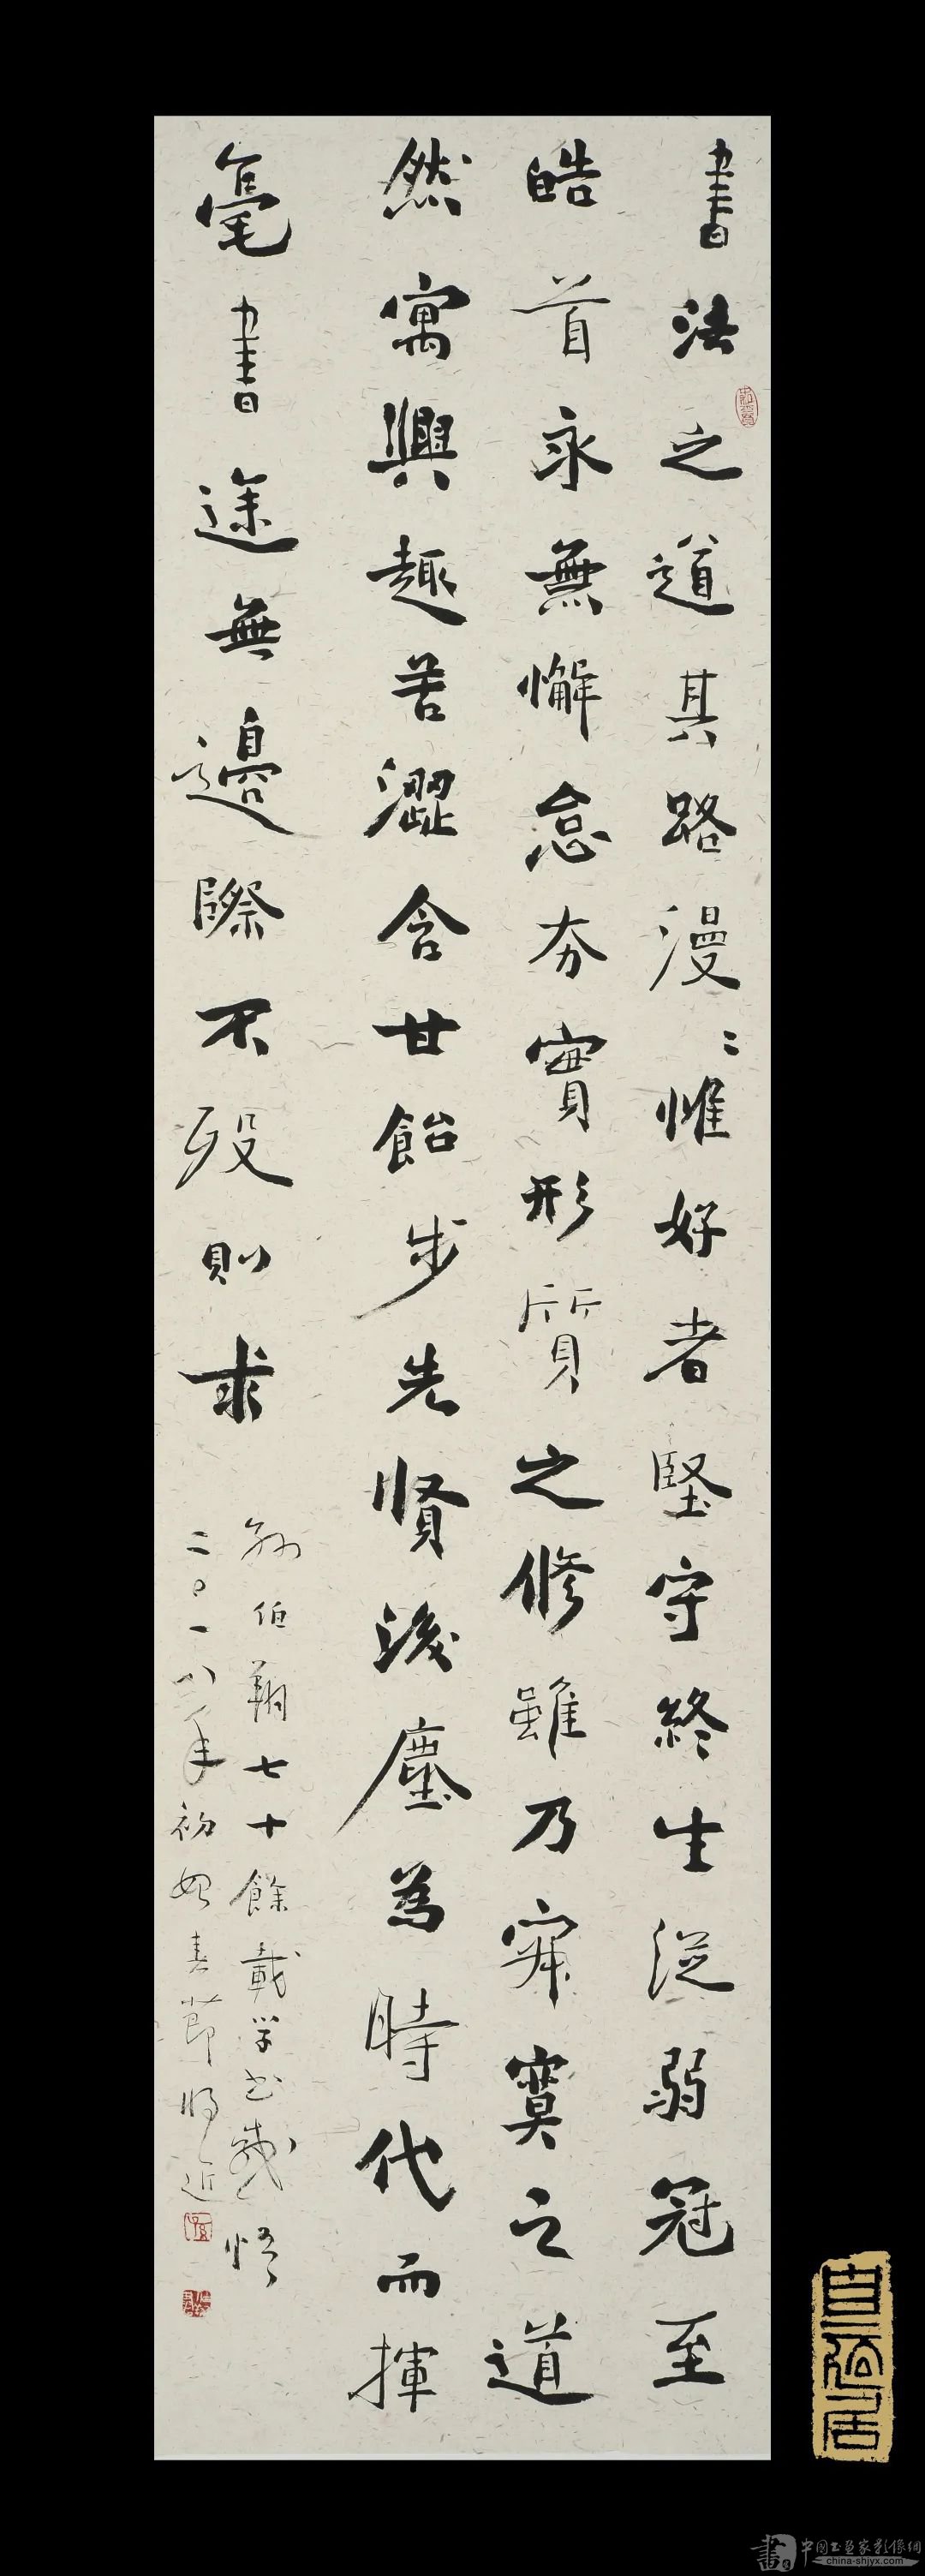 書法之道其路漫〻惟好者堅守終生從弱冠至
皓首永無懈怠夯實形質之修雖乃寂寞之道
然寓興趣苦澀含甘飴步先賢後塵為時代而揮
毫書途無邊際不歿則求
孫伯翔七十餘載学书感悟
二〇一八年初始春節將近
中国书画家影像網
china-shjyx.com